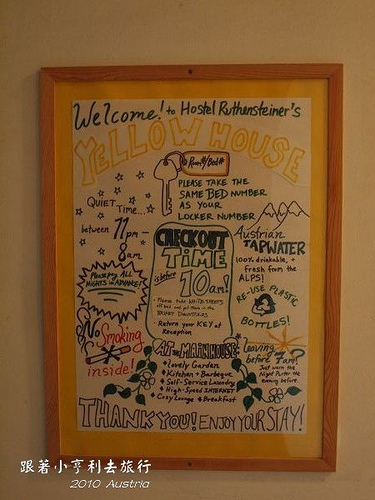 Welcome! to Hostel Ruthensteiner's
YELLOW HOUSE
Room#/Bed#
PLEASE TAKE THE
SAME BED NUMBER
AS YOUR
LOCKER NUMBER
QUIET
Time...
between 11pm -
8am
Please pay ALL
NIGHTS IN ADVANCE!
NO Smoking
inside!
CHECKOUT
TIME
is before
10am!
- Please take WHITE SHEETS
off bed and put them in the
- Return your KEY at
Reception
Austrian
TAPWATER
100% drinkable, +
fresh from the
ALPS!
RE-USE PLASTIC
BOTTLES!
Leaving
before 7am?
Just warn the
Night Porter the
evening before.
AT THE MAINHOUSE:
Lovely Garden
+ Kitchen + Barbeque
+ Self-Service Laundry
+ High-Speed INTERNET
+ Cosy Lounge + Breakfast
THANK YOU! ENJOY YOUR STAY!
跟著小亨利去旅行
2010 Austria